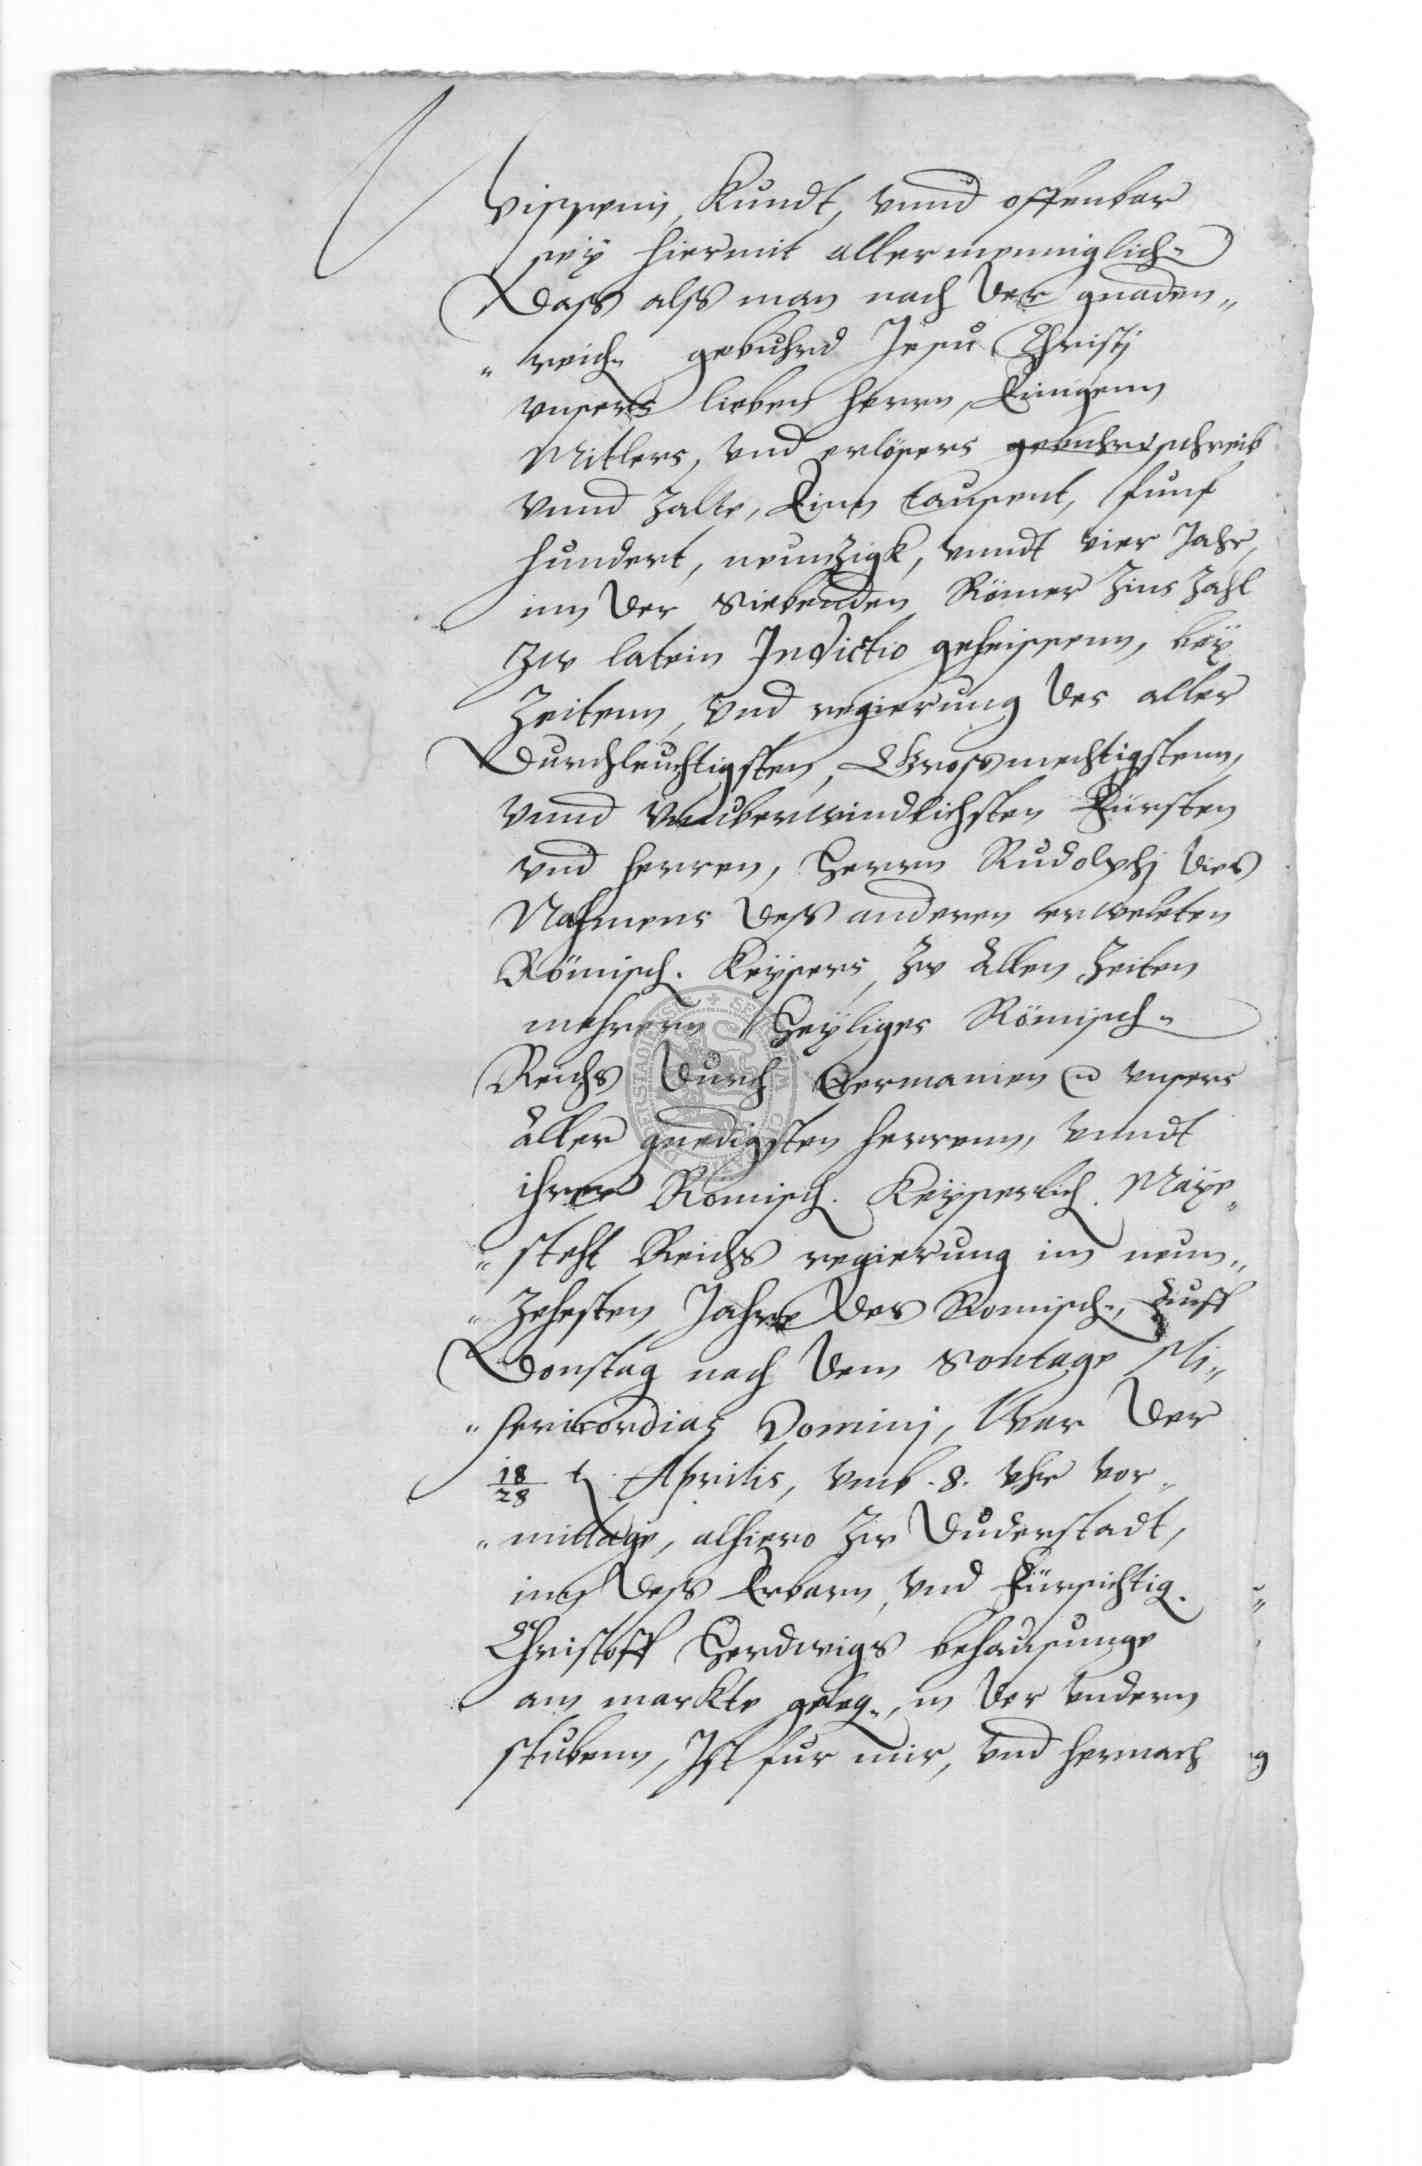 Wissenn, Kundt, vnnd offenbar
sey hiermit allermenniglich
Dass alss man nach der gnaden„
„reich. gebuhrd Jesu Christj
vnsers lieben Herrn, Einigenn
Mitlers, vnd erlösers gebuhrt schreib
vnnd Zalte, Einn tausent, funf
hundert, neunZigk, vnndt vier Jahr,
inn der Siebenden Römer Zins Zahl
Zw latein Indictio geheissenn, bey
Zeitenn, vnd regierung des aller
Durchleuchtigsten, Grosmechtigstenn,
vnnd vnuberwindlichsten Fürsten
vnd Herren, Herrn Rudolphj dies
Nahmens dess anderen erweleten
Römisch. Keysers, Zw Allen Zeiten
mehrern Heyliges Römisch.
Reichs durch Germanien vnsers
Aller gnedigsten Herrenn, vnndt
ihrer Römisch. Keyserlich. Maye„
„steht Reichs regierung im neun„
„Zehesten Jahre des Romisch., Auff
Donstag nach dem Sontage Mi„
„sericordias Dominj, War der
18/28 t. Aprilis, vmb .8. vhr vor„
„mittage, alhiero Zw Duderstadt,
inn dess Erbarn, vnd Fürsichtig.
Christoff Herdwigs behausunge
am markte geleg., in der vndern
stubenn, Ist fur mir, vnd hernach